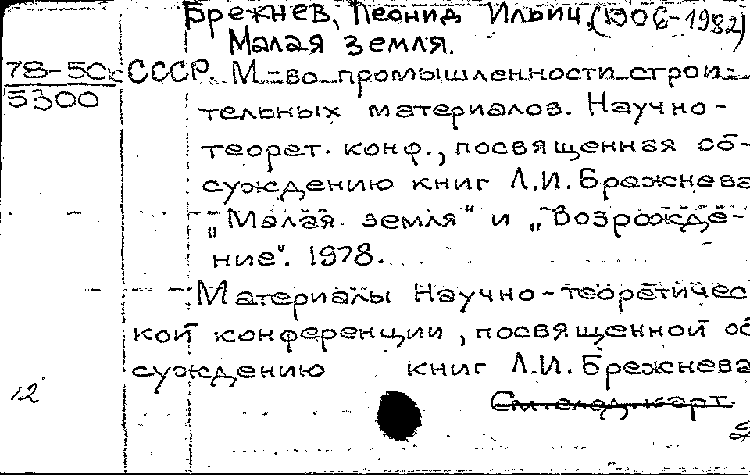 Брежнев, Леонид Ильич (1906-1982)
Малая земля.
78-50 СССР. М-во промышленности строи-
5300
тельных материалов. Научно-
теорет. конф., посвященная об-
суждению книг Л.И.Брежнева
„Малая земля" и „Возрожде-
ние". 1978.
Материалы Научно-теоретичес
кой конференции, посвященной об
суждению книг Л.И.Брежнева
12
См. след. карт.